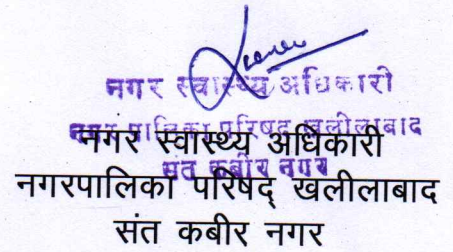 नगर स्वास्थ्य अधिकारी
नगर पालिका परिषद खलीलाबाद
संत कबीर नगर
नगर स्वास्थ्य अधिकारी
नगरपालिका परिषद् खलीलाबाद
संत कबीर नगर